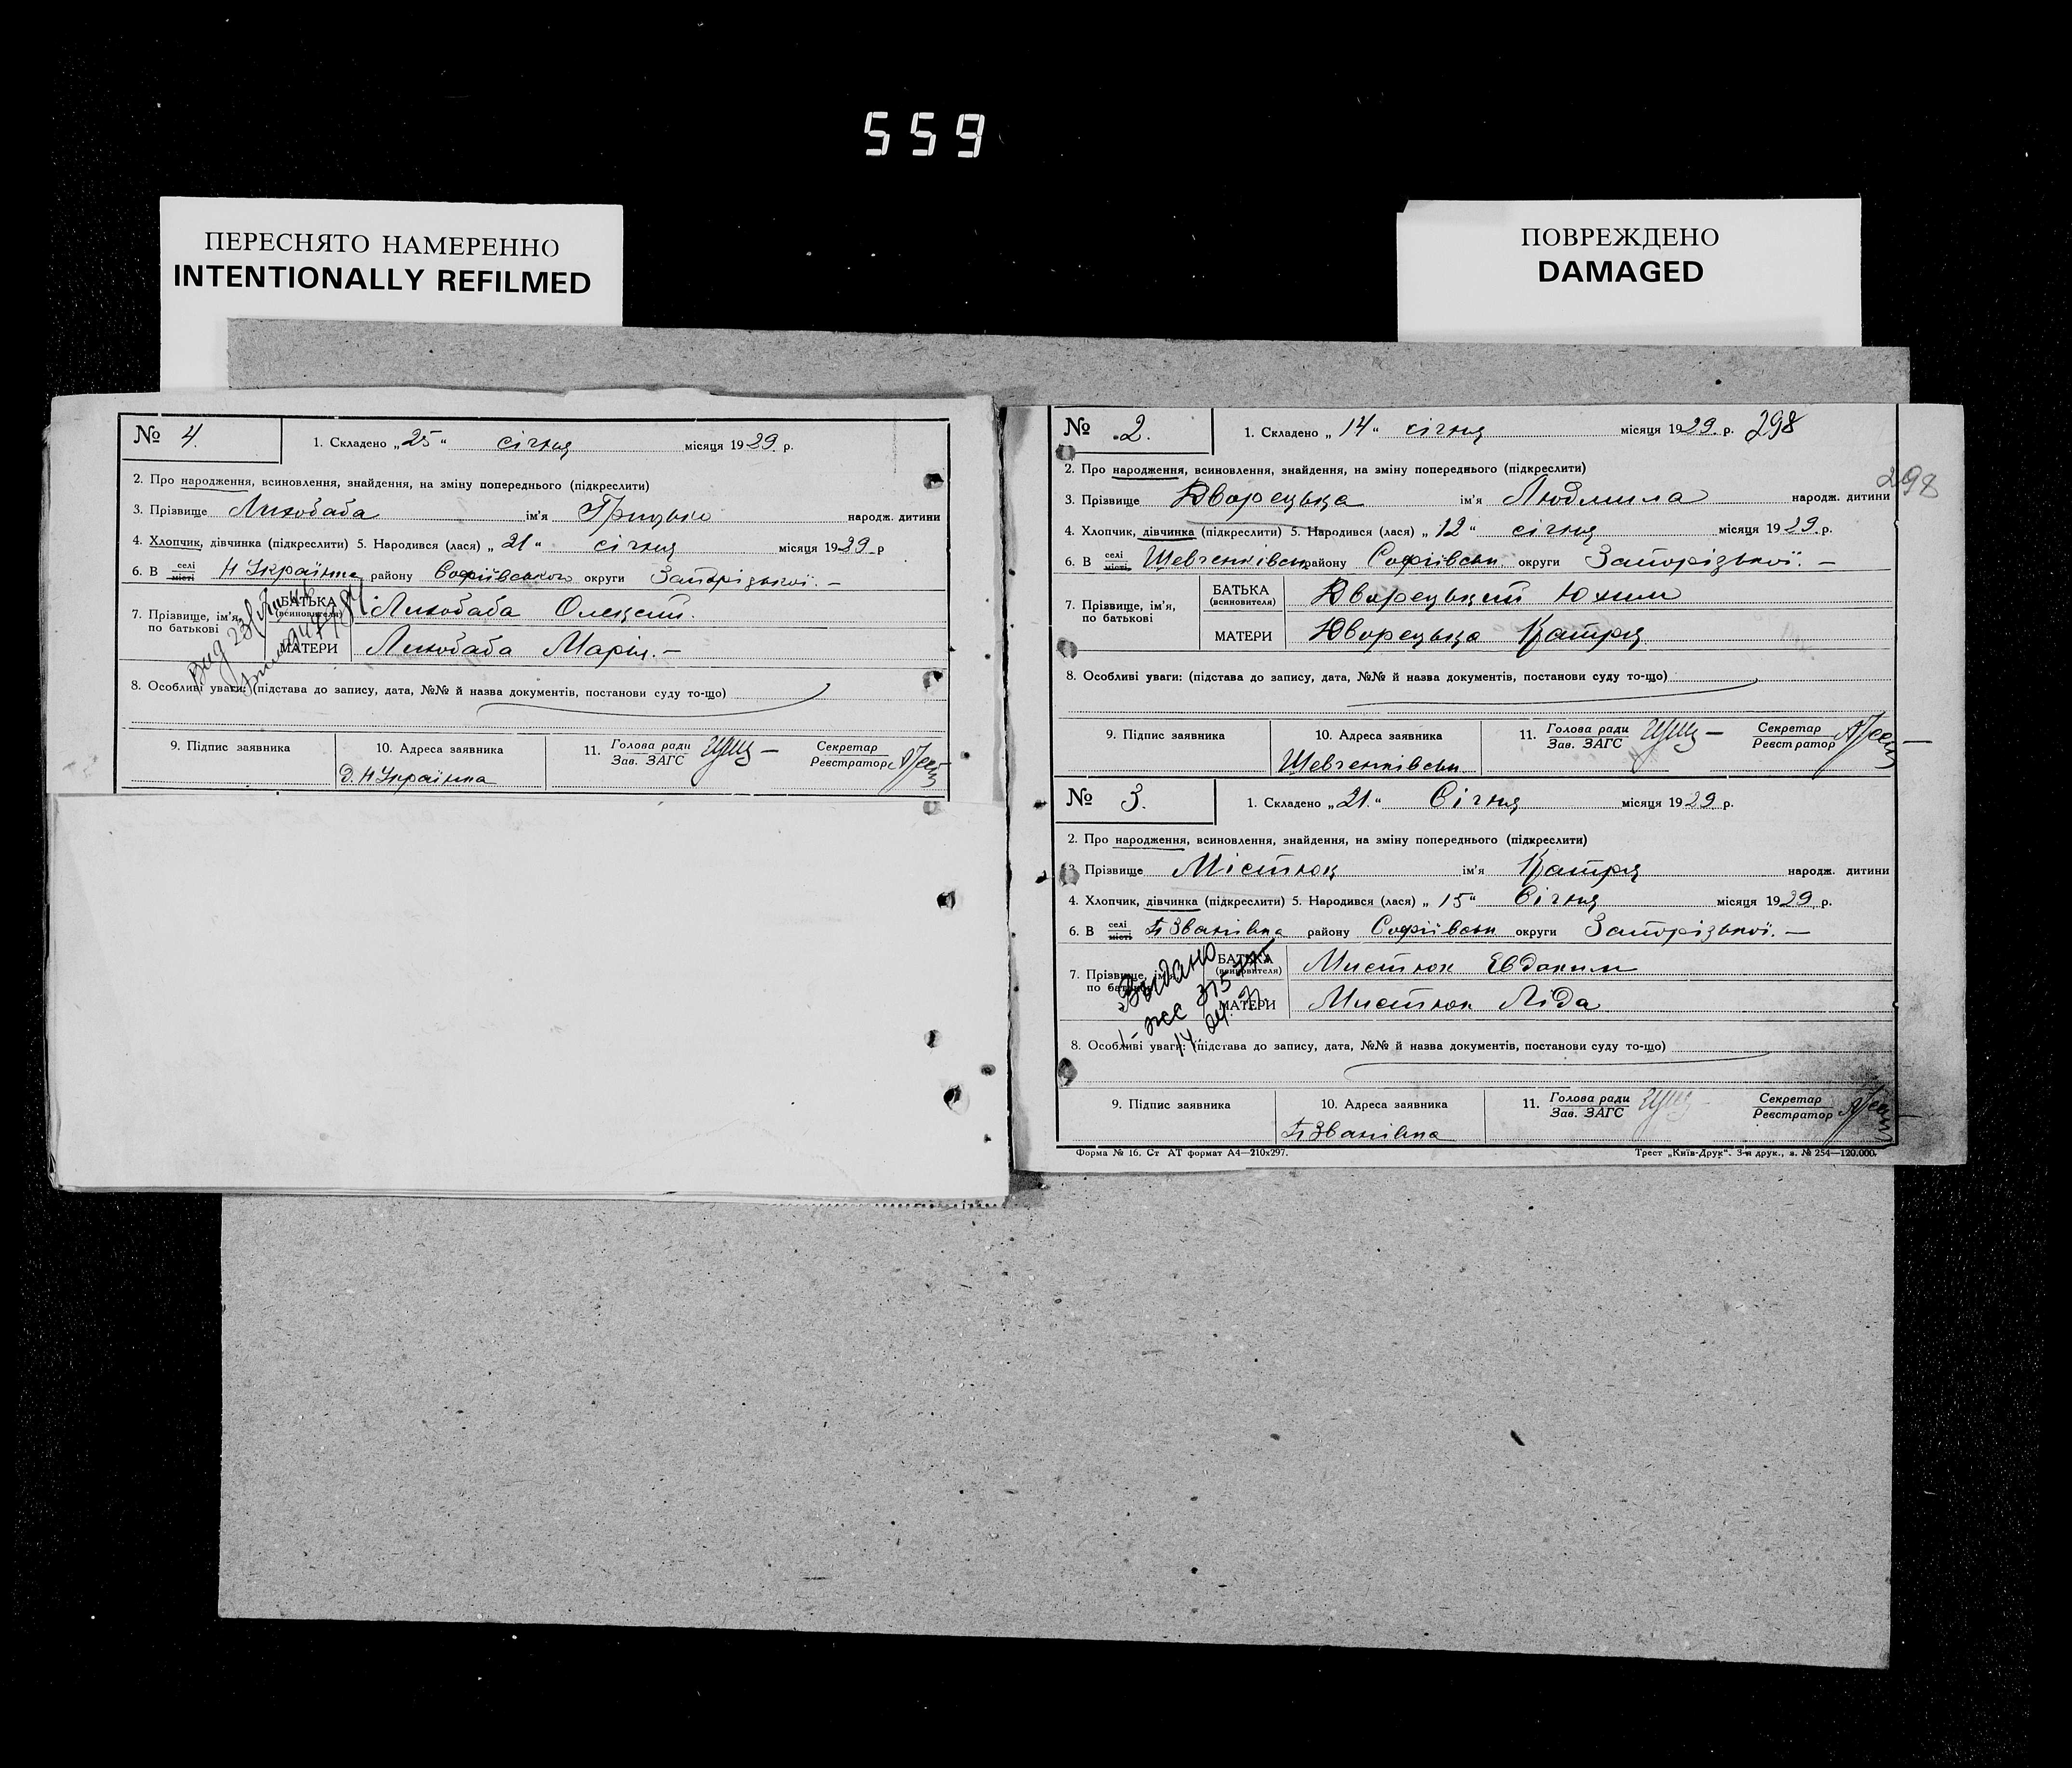 559
ПЕРЕСНЯТО НАМЕРЕННО
INTENTIONALLY REFILMED
ПОВРЕЖДЕНО
DAMAGED
№ 4.
1. Складено „25“ січня місяця 1929 р.
2. Про народження, всиновлення, знайдення, на зміну попереднього (підкреслити)
3. Прізвище Лихобаба ім'я Грицько народж. дитини
4. Хлопчик, дівчинка (підкреслити) 5. Народився (лася) „21“ січня місяця 1929 р
6. В селі місті Н Українка району Софіївського округи Запорізької. —
7. Прізвище, ім'я, по батькові БАТЬКА (всиновителя) Лихобаба Олексій.
МАТЕРИ Лихобаба Марія. —
8. Особливі уваги: (підстава до запису, дата, №№ й назва документів, постанови суду то-що)
9. Підпис заявника 10. Адреса заявника 11. Голова ради Зав. ЗАГС Секретар Реєстратор
Д. Н Українка
№ 2.
1. Складено „14“ січня місяця 1929 р. 298
298
2. Про народження, всиновлення, знайдення, на зміну попереднього (підкреслити)
3. Прізвище Дворецька ім'я Людмила народж. дитини
4. Хлопчик, дівчинка (підкреслити) 5. Народився (лася) „12“ січня місяця 1929 р.
6. В селі місті Шевченківськ району Софіївськ округи Запорізької. —
7. Прізвище, ім'я, по батькові БАТЬКА (всиновителя) Дворецький Юхим
МАТЕРИ Дворецька Катря
8. Особливі уваги: (підстава до запису, дата, №№ й назва документів, постанови суду то-що)
9. Підпис заявника 10. Адреса заявника 11. Голова ради Зав. ЗАГС Секретар Реєстратор
Шевченківськ
№ 3.
1. Складено „21“ Січня місяця 1929 р.
2. Про народження, всиновлення, знайдення, на зміну попереднього (підкреслити)
3. Прізвище Містюк ім'я Катря народж. дитини
4. Хлопчик, дівчинка (підкреслити) 5. Народився (лася) „15“ Січня місяця 1929 р.
6. В селі місті П Званівка району Софіївськ округи Запорізької. —
7. Прізвище, ім'я, по батькові БАТЬКА (всиновителя) Мистюк Евдоким
МАТЕРИ Мистюк Ліда
Выдано
8. Особливі уваги: (підстава до запису, дата, №№ й назва документів, постанови суду то-що)
9. Підпис заявника 10. Адреса заявника 11. Голова ради Зав. ЗАГС Секретар Реєстратор
П Званівка
Форма № 16. Ст АТ формат А4—210x297.
Трест „Київ-Друк“. 3-я друк., з. № 254—120.000.